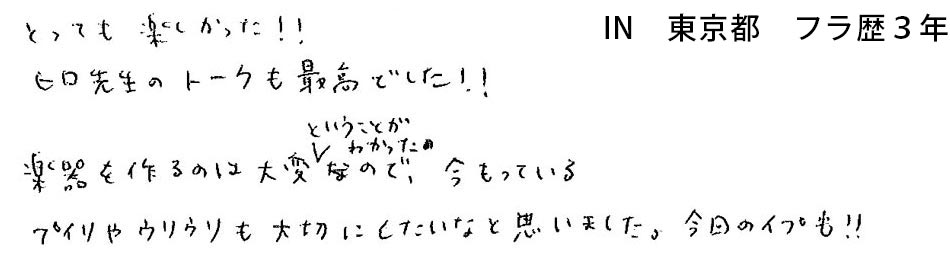 IN 東京都 フラ歴3年
とっても楽しかった!!
ヒロ先生のトークも最高でした!!
ということが
わかったの
楽器を作るのは大変なので、今もっている
プイリやウリウリも大切にしたいなと思いました。今日のイプも!!